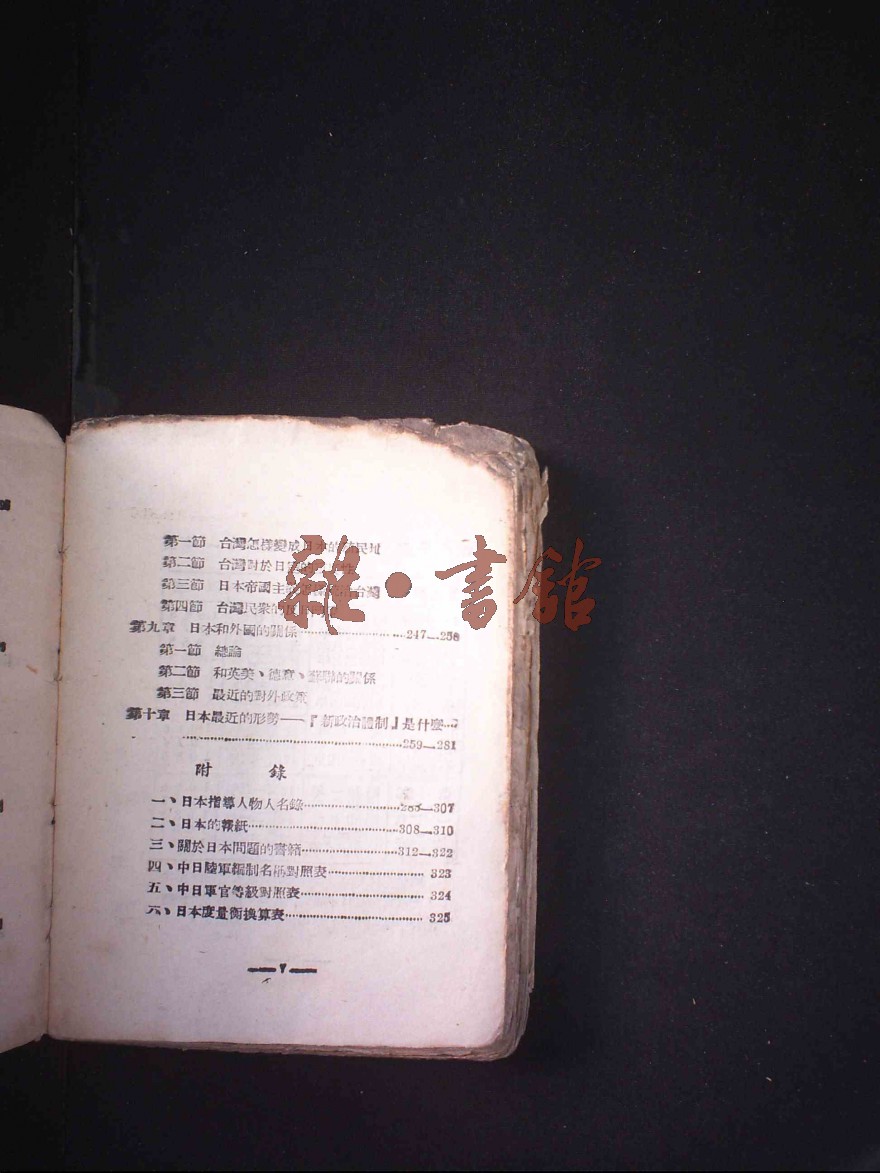 第一節 台灣怎樣變成日本的殖民地
第二節 台灣對於日
第三節 日本帝國主 台灣
第四節 台灣民衆的反
第九章 日本和外國的關係 247—258
第一節 總論
第二節 和英美、德意、蘇聯的關係
第三節 最近的對外政策
第十章 日本最近的形勢——『新政治體制』是什麼
259—281
附 錄
一、日本指導人物人名錄 285—307
二、日本的報紙 308—310
三、關於日本問題的書籍 312—322
四、中日陸軍編制名稱對照表 323
五、中日軍官等級對照表 324
六、日本度量衡換算表 325
雜·書館